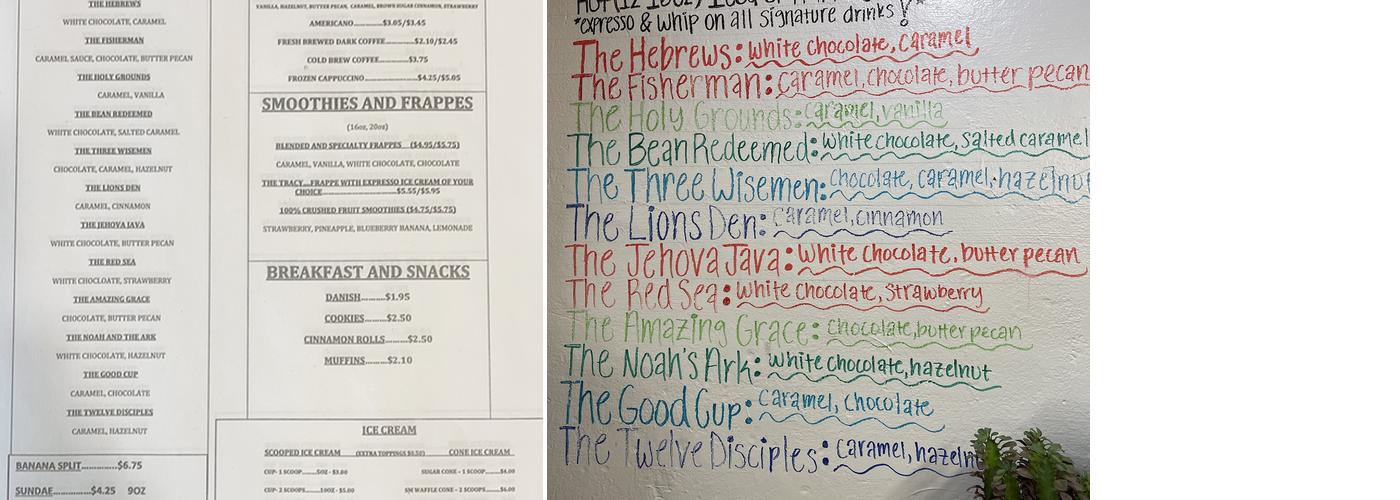 THE HEBREWS
WHITE CHOCOLATE, CARAMEL
THE FISHERMAN
CARAMEL SAUCE, CHOCOLATE, BUTTER PECAN
THE HOLY GROUNDS
CARAMEL, VANILLA
THE BEAN REDEEMED
WHITE CHOCOLATE, SALTED CARAMEL
THE THREE WISEMEN
CHOCOLATE, CARAMEL, HAZELNUT
THE LIONS DEN
CARAMEL, CINNAMON
THE JEHOVA JAVA
WHITE CHOCOLATE, BUTTER PECAN
THE RED SEA
WHITE CHOCLOATE, STRAWBERRY
THE AMAZING GRACE
CHOCOLATE, BUTTER PECAN
THE NOAH AND THE ARK
WHITE CHOCOLATE, HAZELNUT
THE GOOD CUP
CARAMEL, CHOCOLATE
THE TWELVE DISCIPLES
CARAMEL, HAZELNUT
BANANA SPLIT.............$6.75
SUNDAE...............$4.25 9OZ
VANILLA, HAZELNUT, BUTTER PECAN, CARAMEL, BROWN SUGAR CINNAMON, STRAWBERRY
AMERICANO..............$3.05/$3.45
FRESH BREWED DARK COFFEE.............$2.10/$2.45
COLD BREW COFFEE..........$3.75
FROZEN CAPPUCCINO....................$4.25/$5.05
SMOOTHIES AND FRAPPES
(16oz, 20oz)
BLENDED AND SPECIALTY FRAPPES ($4.95/$5.75)
CARAMEL, VANILLA, WHITE CHOCOLATE, CHOCOLATE
THE TRACY....FRAPPE WITH EXPRESSO ICE CREAM OF YOUR
CHOICE...............................$5.55/$5.95
100% CRUSHED FRUIT SMOOTHIES ($4.75/$5.75)
STRAWBERRY, PINEAPPLE, BLUEBERRY BANANA, LEMONADE
BREAKFAST AND SNACKS
DANISH..........$1.95
COOKIES..........$2.50
CINNAMON ROLLS..........$2.50
MUFFINS..........$2.10
ICE CREAM
SCOOPED ICE CREAM (EXTRA TOPPINGS $0.50) CONE ICE CREAM
CUP- 1 SCOOP.......5OZ - $3.00 SUGAR CONE - 1 SCOOP.......$4.00
CUP- 2 SCOOPS.......10OZ - $5.00 SM WAFFLE CONE - 2 SCOOPS.......$6.00
*expresso & whip on all signature drinks!*
The Hebrews: White chocolate, Caramel
The Fisherman: Caramel, chocolate, butter pecan
The Holy Grounds: caramel, vanilla
The Bean Redeemed: White chocolate, Salted caramel
The Three Wisemen: Chocolate, caramel, hazelnut
The Lions Den: Caramel, cinnamon
The Jehova Java: White chocolate, butter pecan
The Red Sea: White Chocolate, Strawberry
The Amazing Grace: Chocolate, butter pecan
The Noah's Ark: White chocolate, hazelnut
The Good Cup: Caramel, Chocolate
The Twelve Disciples: Caramel, hazeln